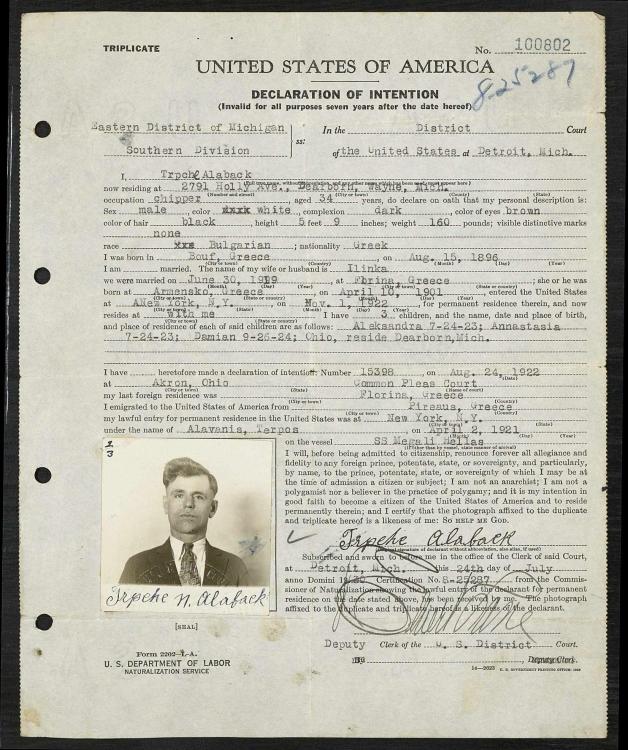 TRIPLICATE
No. 100802
UNITED STATES OF AMERICA
DECLARATION OF INTENTION
(Invalid for all purposes seven years after the date hereof)
8-25287
Eastern District of Michigan
Southern Division
ss:
In the District Court
of the United States at Detroit, Mich.
I, Trpche Alaback
now residing at 2791 Holly Ave., Dearborn, Wayne, Mich.
occupation chipper, aged 34 years, do declare on oath that my personal description is:
Sex male, color white, complexion dark, color of eyes brown
color of hair black, height 5 feet 9 inches; weight 160 pounds; visible distinctive marks
none
race Bulgarian; nationality Greek
I was born in Bouf, Greece, on Aug. 15, 1896
I am married. The name of my wife or husband is Ilinka
we were married on June 30, 1919, at Fbrina, Greece; she or he was
born at Armensko, Greece, on April 10, 1901, entered the United States
at ANew York, N.Y., on Nov. 1, 1922, for permanent residence therein, and now
resides at with me. I have 3 children, and the name, date and place of birth,
and place of residence of each of said children are as follows: Aleksandra 7-24-23; Annastasia
7-24-23; Damian 9-26-24; Ohio, reside Dearborn, Mich.
I have heretofore made a declaration of intention: Number 15398, on Aug. 24, 1922
at Akron, Ohio Common Pleas Court
my last foreign residence was Florina, Greece
I emigrated to the United States of America from Pireaus, Greece
my lawful entry for permanent residence in the United States was at New York, N.Y.
under the name of Alavanis, Terpos, on April 2, 1921
on the vessel SS Megali Hellas
I will, before being admitted to citizenship, renounce forever all allegiance and
fidelity to any foreign prince, potentate, state, or sovereignty, and particularly,
by name, to the prince, potentate, state, or sovereignty of which I may be at
the time of admission a citizen or subject; I am not an anarchist; I am not a
polygamist nor a believer in the practice of polygamy; and it is my intention in
good faith to become a citizen of the United States of America and to reside
permanently therein; and I certify that the photograph affixed to the duplicate
and triplicate hereof is a likeness of me: SO HELP ME GOD.
Trpche Alaback
(Original signature of declarant without abbreviation, also alias, if used)
Subscribed and sworn to before me in the office of the Clerk of said Court,
at Detroit, Mich. this 24th day of July
anno Domini 19 Certification No. 8-25287 from the Commis-
sioner of Naturalization showing the lawful entry of the declarant for permanent
residence on the date stated above, has been received by me. The photograph
affixed to the duplicate and triplicate hereof is a likeness of the declarant.
Deputy Clerk of the U. S. District Court.
Trpche N. Alaback
[SEAL]
Form 2202-L-A.
U. S. DEPARTMENT OF LABOR
NATURALIZATION SERVICE
14-2623 U. S. GOVERNMENT PRINTING OFFICE